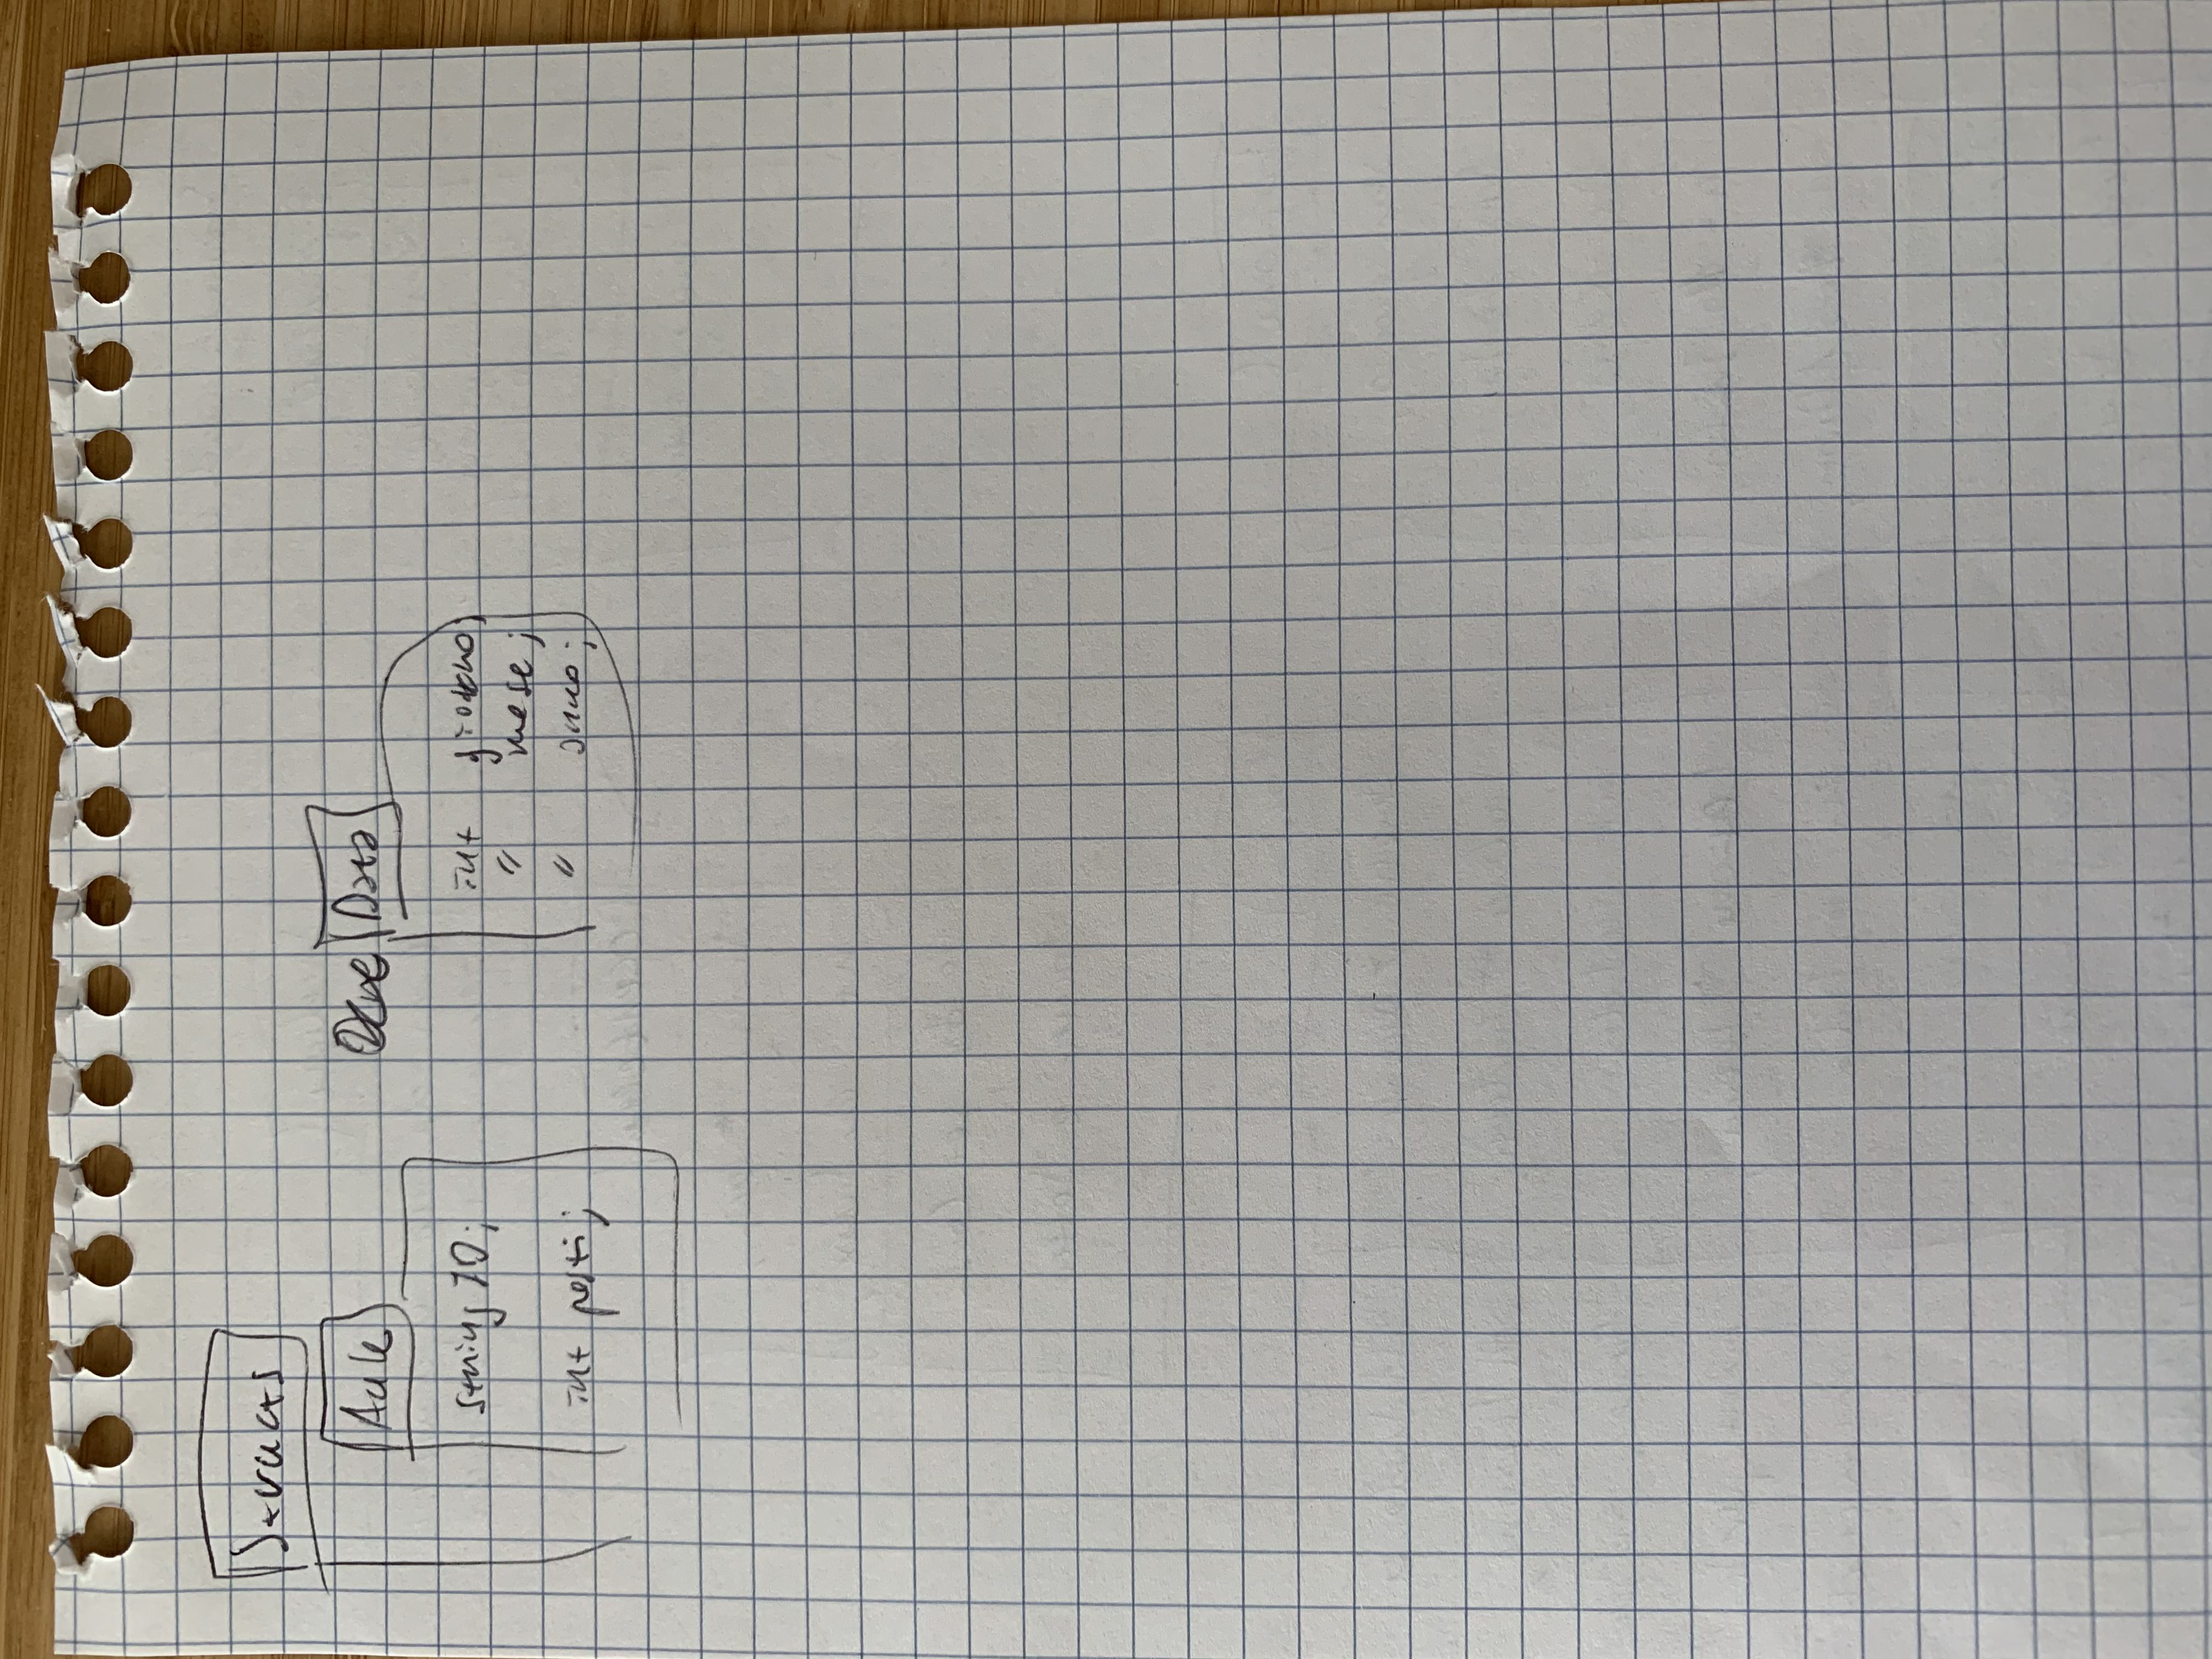 Structs
Aule
string ID;
int posti;
Data
int giorno;
" mese;
" anno;